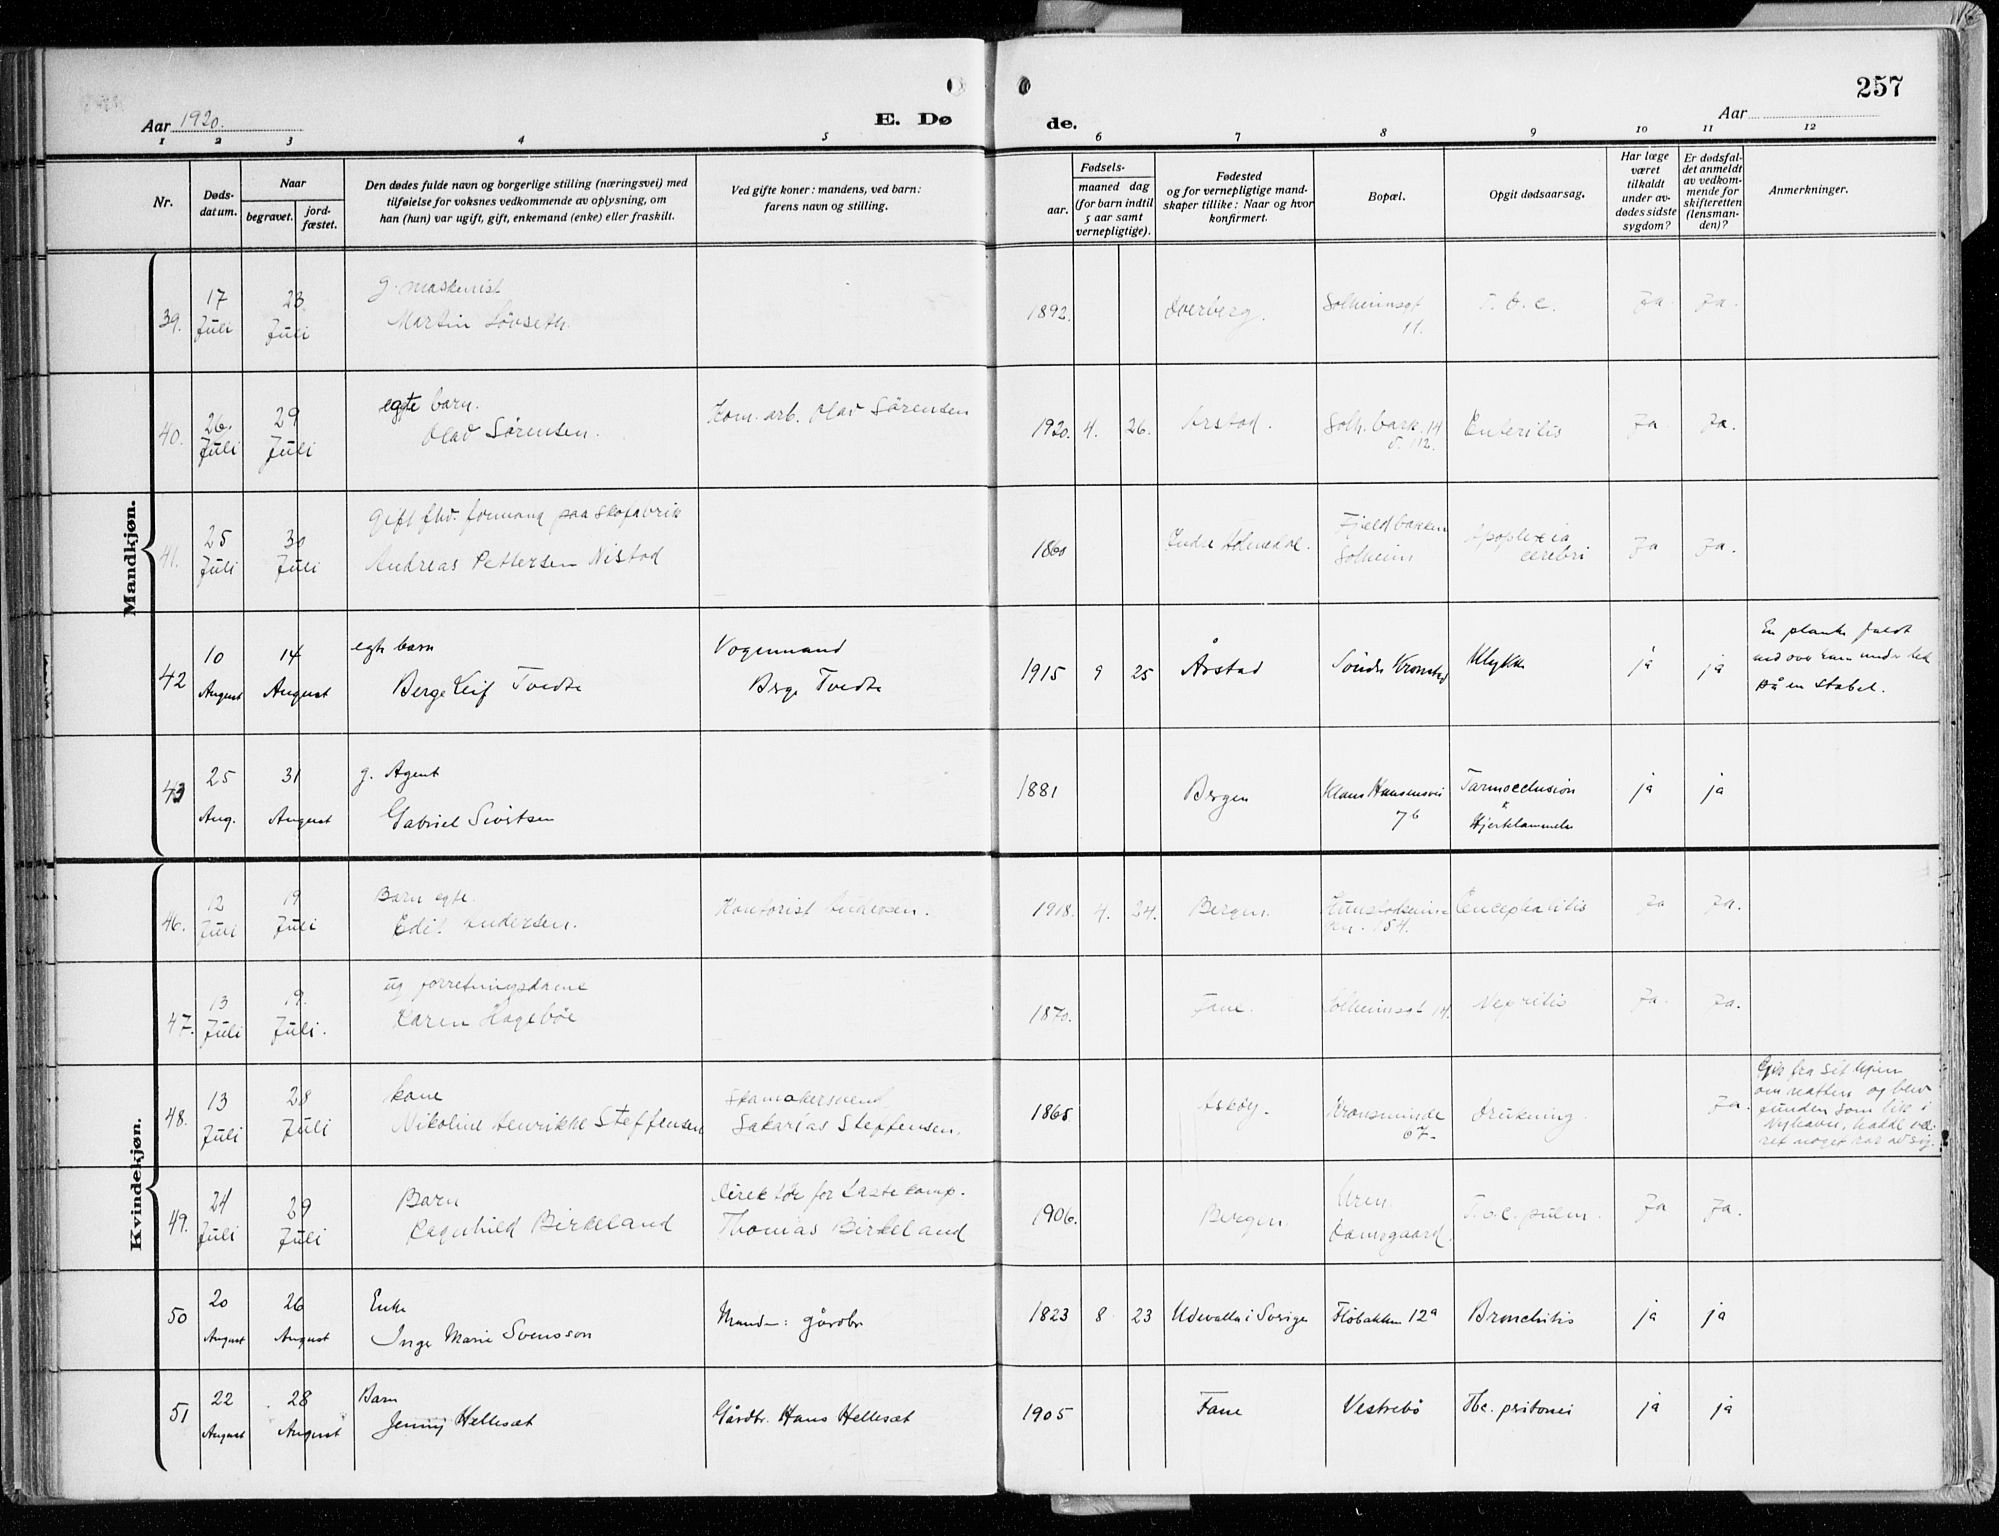 257
Aar 1920.
E. Dø
de.
Aar
1 2 3 4 5 6 7 8 9 10 11 12
Nr.
Døds-
datum.
Naar
begravet.
jord-
fæstet.
Den dødes fulde navn og borgerlige stilling (næringsvei) med
tilføielse for voksnes vedkommende av oplysning, om
han (hun) var ugift, gift, enkemand (enke) eller fraskilt.
Ved gifte koner: mandens, ved barn:
farens navn og stilling.
Fødsels-
aar.
maaned dag
(for barn indtil
5 aar samt
vernepligtige).
Fødested
og for vernepligtige mand-
skaper tillike: Naar og hvor
konfirmert.
Bopæl.
Opgit dødsaarsag.
Har læge
været
tilkaldt
under av-
dødes sidste
sygdom?
Er dødsfal-
det anmeldt
av vedkom-
mende for
skifteretten
(lensman-
den)?
Anmerkninger.
Mandkjøn.
39.
17
Juli
23
Juli
g. maskinist
Martin Løvseth.
1892.
Dverberg.
Solheimsgt.
11.
T. b. c.
Ja
Ja.
40.
26.
Juli
29
Juli
egte barn.
Olav Sørensen.
Kom. arb. Olav Sørensen
1920. 4. 26.
Årstad.
Solh. bark. 14
Enteritis
Ja.
Ja.
41.
25
Juli
30
Juli
Gift fhv. formand paa skofabrik
Andreas Pettersen Nistad
1860
Indre Holmedal.
Fjeldbakken
Solheim
Apoplexia
cerebri
Ja
Ja.
42
10
August
14
August
egte barn
Berge Leif Tvedte
Vognmand
Berge Tvedte
1915 9 25
Årstad
Søndre Kronstad
Ulykke
ja
ja
En planke faldt
ned over ham under lek
på en stabel.
43
25
Aug.
31
August
g. Agent
Gabriel Sivertsen
1881
Bergen
Klaus Hansensvei
76
Tarmocclusion
Hjertelammelse
ja
ja
Kvindekjøn.
46.
12
Juli
19
Juli
Barn egte.
Edit Andersen.
Kontorist Andersen.
1918. 4. 24.
Bergen.
154.
Encephalitis
Ja
Ja.
47.
13
Juli
19.
Juli.
ug forretningsdame
Karen Hagebøe
1870.
Fane.
Solheimsgt 14.
Nefritis
Ja.
Ja.
48.
13
Juli
28
Juli
kone
Nikoline Henrikke Steffensen
Skomakersvend
Sakarias Steffensen.
1865
Askøy.
Kronsminde
67-
Drukning.
Ja.
Gik fra sit hjem
om natten og blev
funden som lik i
Nyhavn, hadde væ-
ret noget rar av sig.
49.
24
Juli
29
Juli
Barn
Ragnhild Birkeland
Direktør for Lastekomp.
Thomas Birkeland
1906.
Bergen.
Uren
Damsgaard.
T. b. c. pulm.
Ja
Ja.
50
20
August
26
August
Enke
Inge Marie Svensson
Mand: gårdbr
1823 8 23
Udevalla i Sverige
Fløbakken 12a
Bronchitis
ja
ja
51
22
August
28
August
Barn
Jenny Hellesæt
Gårdbr. Hans Hellesæt
1905
Fane
Vestrebø
Tbc. pritonei
ja
ja